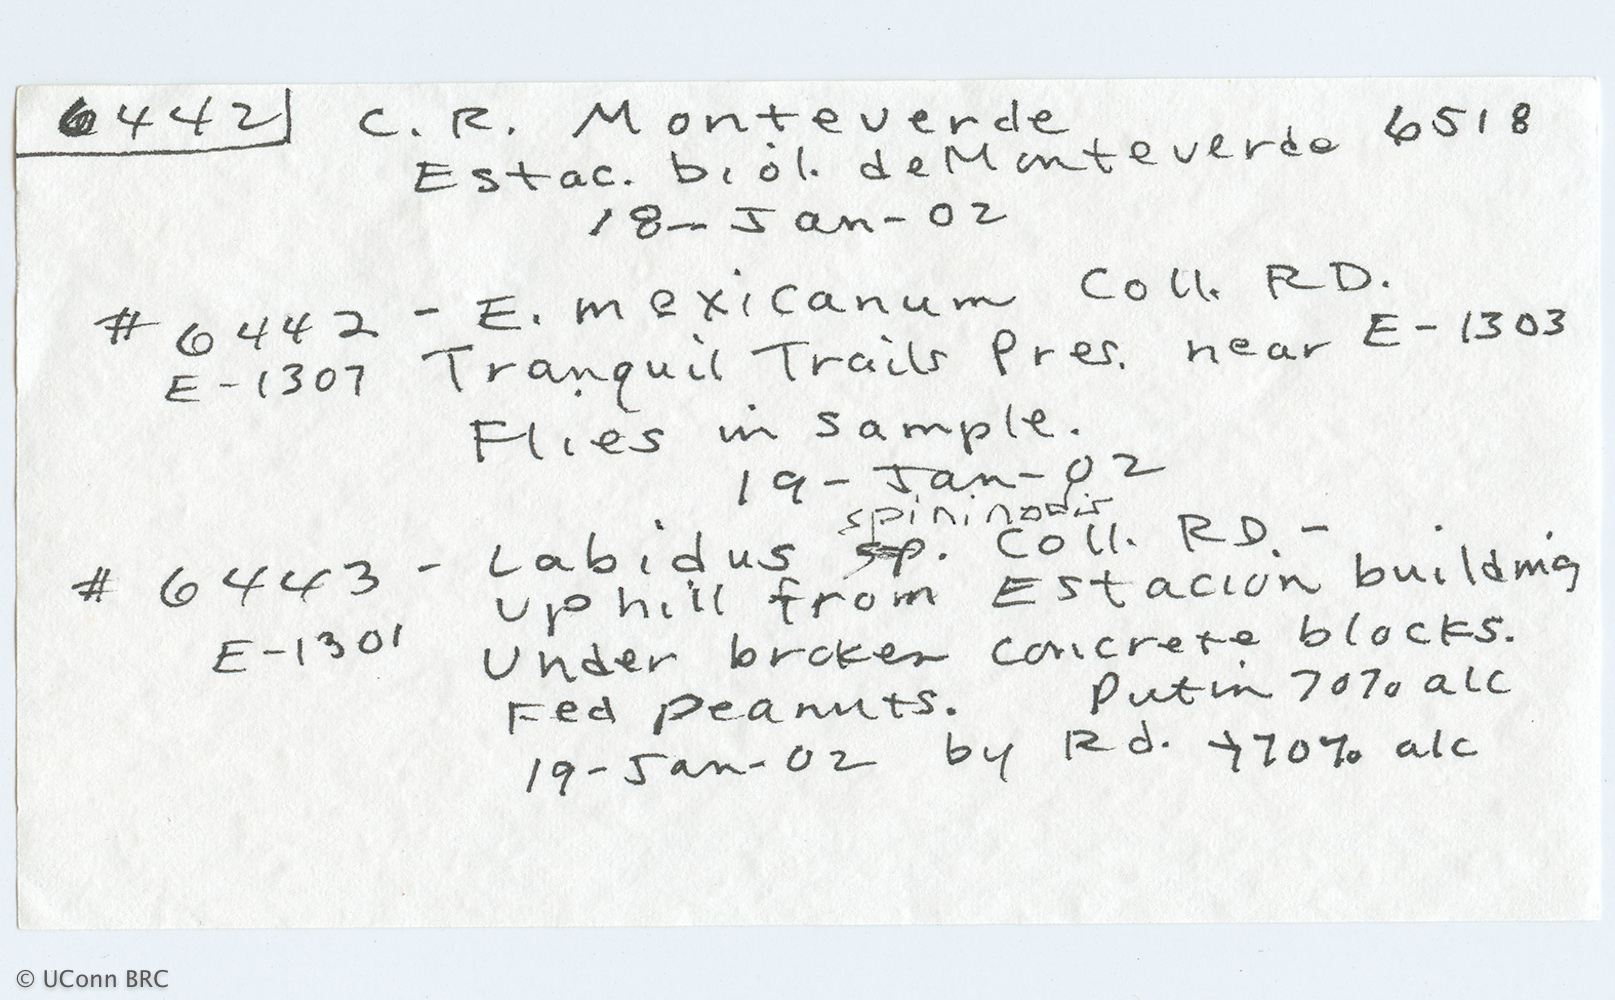 6442 C. R. Monteverde 6518
Estac. biol. de Monteverde
18-Jan-02
#6442 - E. mexicanum Coll. RD.
E-1307 Tranquil Trails Pres. near E-1303
Flies in sample.
19-Jan-02
spininodis
#6443 - Labidus sp. Coll. RD. -
uphill from Estación building
E-1301 Under broken concrete blocks.
Fed peanuts. Put in 70% alc
19-Jan-02 by Rd. + 70% alc
© UConn BRC